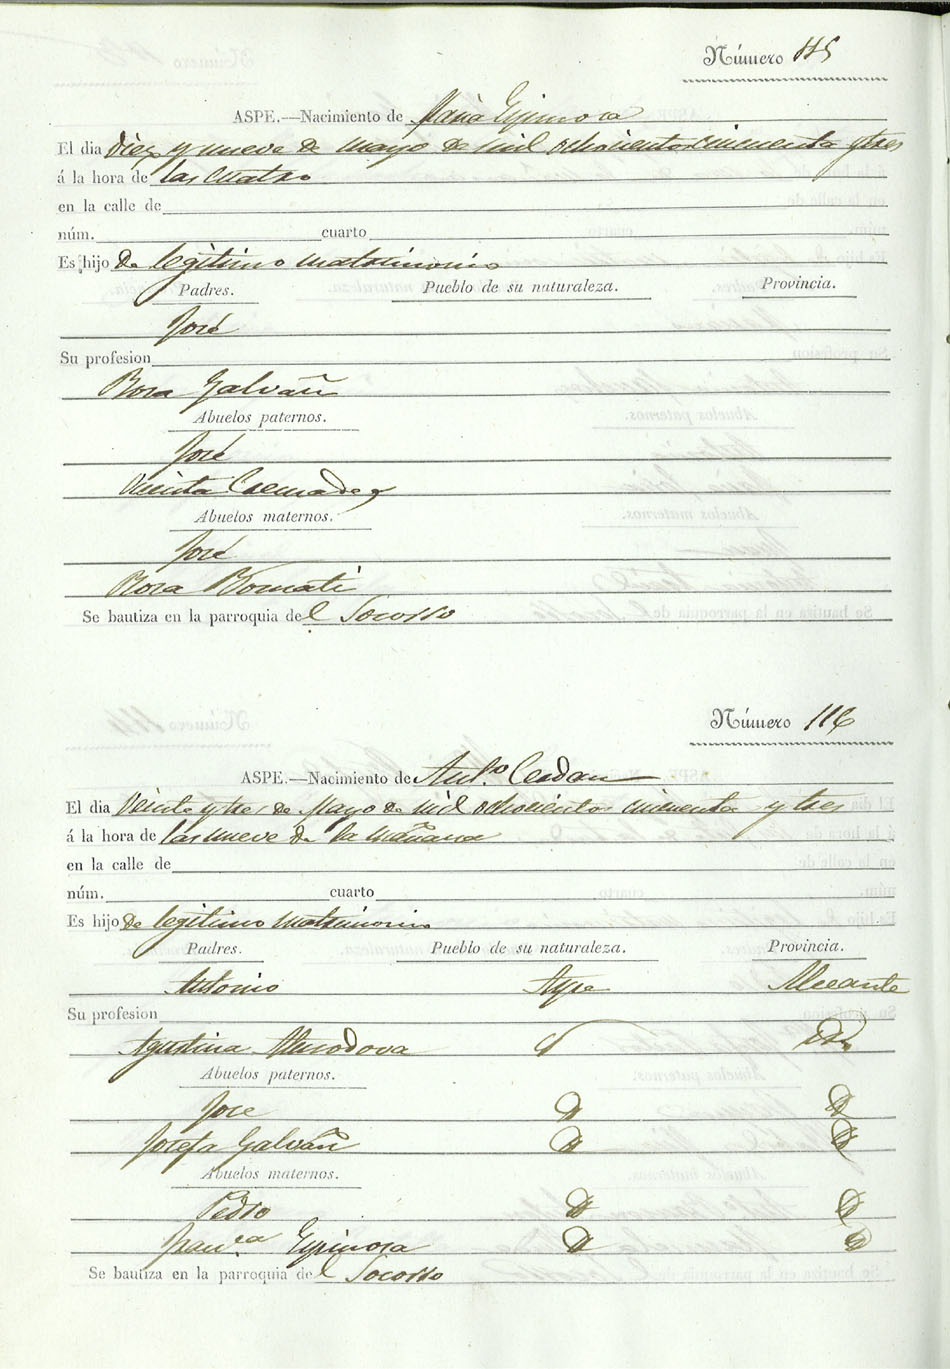 Número 115
ASPE.—Nacimiento de María Espinosa
El dia diez y nueve de mayo de mil ochocientos cincuenta y tres
á la hora de las cuatro
en la calle de
núm. cuarto
Es hijo de legitimo matrimonio
Padres. Pueblo de su naturaleza. Provincia.
José
Su profesion
Rosa Galvañ
Abuelos paternos.
José
Vicenta Cremades
Abuelos maternos.
José
Rosa
Se bautiza en la parroquia del Socorro
Número 116
ASPE.—Nacimiento de Ant.º Cerdan
El dia Veinte y tres de Mayo de mil ochocientos cincuenta y tres
á la hora de las nueve de la mañana
en la calle de
núm. cuarto
Es hijo de legitimo matrimonio
Padres. Pueblo de su naturaleza. Provincia.
Antonio Aspe Alicante
Su profesion
Agustina Almodova
Abuelos paternos.
Jose
Josefa Galvañ
Abuelos maternos.
Pedro
Fran.ca Espinosa
Se bautiza en la parroquia del Socorro